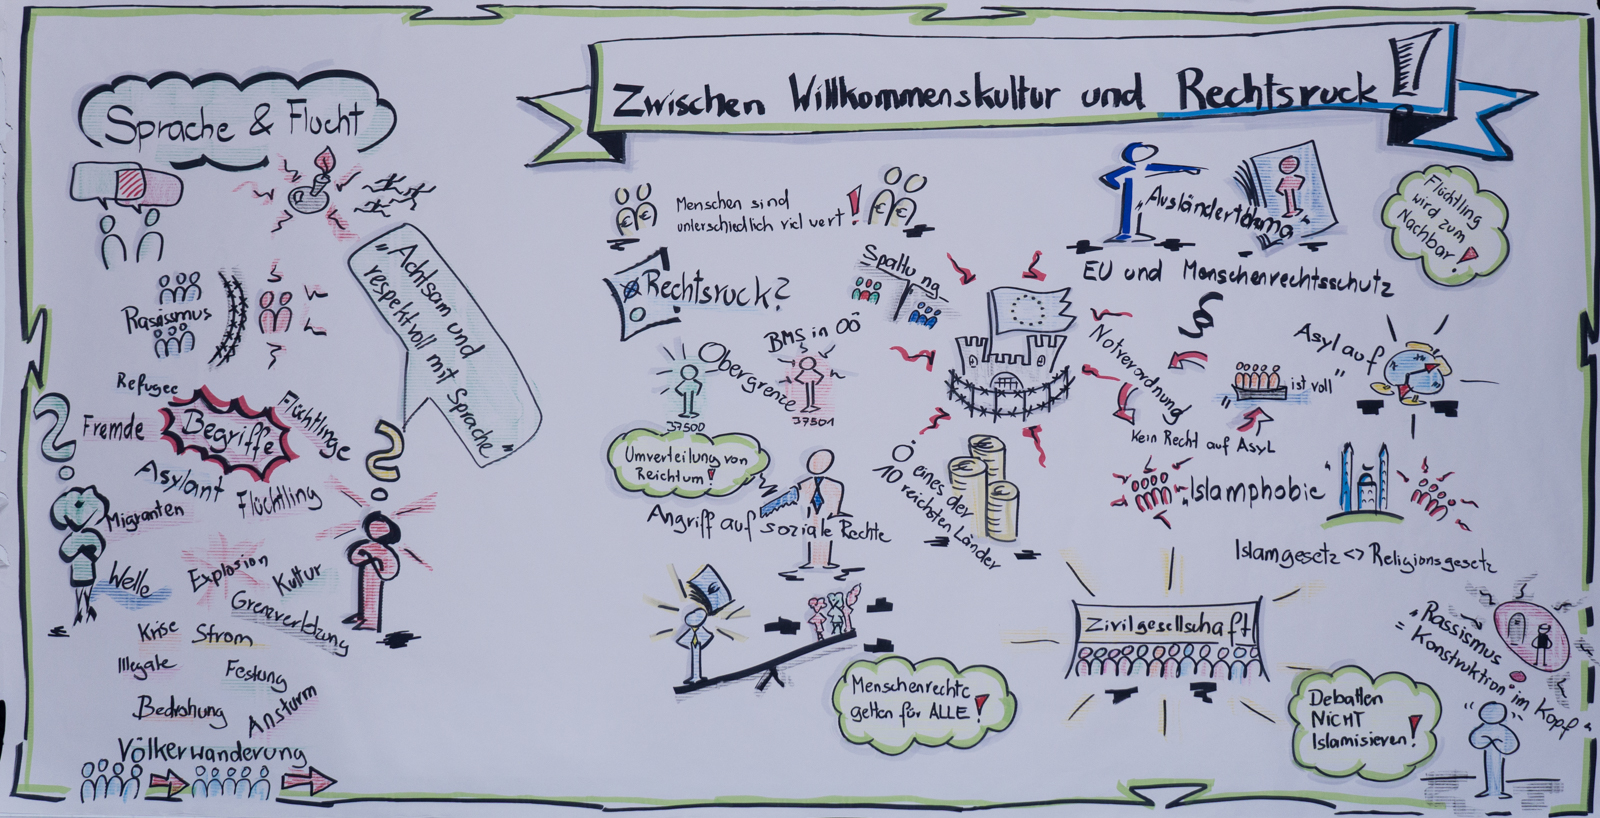 Zwischen Willkommenskultur und Rechtsruck!
Sprache & Flucht
"Achtsam und
respektvoll mit Sprache"
Rassismus
Refugee
Fremde
Begriffe
Flüchtlinge
Asylant
Flüchtling
Migranten
Welle
Explosion
Kultur
Grenzverletzung
Krise
Strom
Illegale
Festung
Bedrohung
Ansturm
Völkerwanderung
€ €
Menschen sind
unterschiedlich viel wert!
€ €
Rechtsruck?
Spaltung
BMS in OÖ
Obergrenze
37500
37501
Umverteilung von
Reichtum!
Angriff auf soziale Rechte
Ö eines der
10 reichsten Länder
€
Menschenrechte
gelten für ALLE!
"Ausländerthema"
EU und Menschenrechtsschutz
Flüchtling
wird zum
Nachbar!
§
Notverordnung
Kein Recht auf Asyl
" ist voll"
Asyl auf
Islamphobie
Islamgesetz <> Religionsgesetz
Zivilgesellschaft
"Rassismus
= Konstruktion im Kopf"
Debatten
NICHT
Islamisieren!